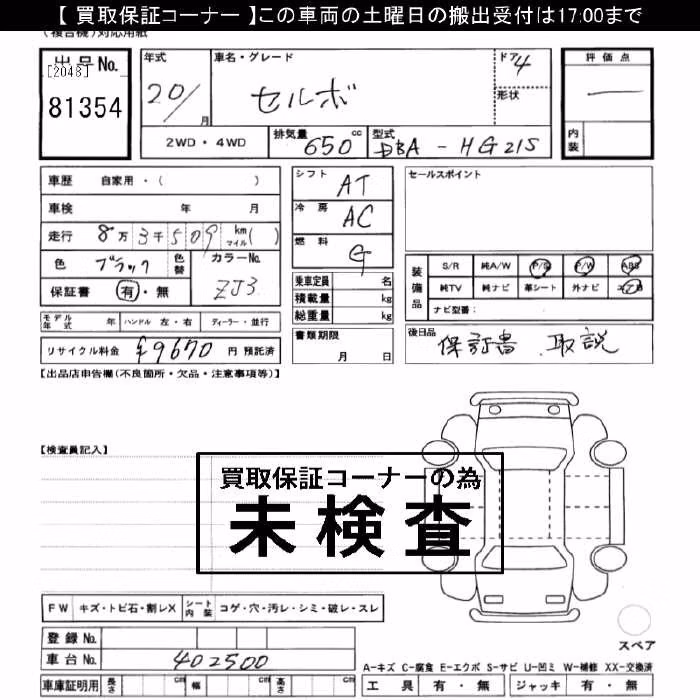 【 買取保証コーナー 】この車両の土曜日の搬出受付は17:00まで
(複合機)対応用紙
出品No.
[2048]
81354
年式
20/
月
車名・グレード
セルボ
ドア
4
形状
2WD・4WD
排気量
650 cc
型式
DBA - HG21S
評価点
内装
車歴 自家用・( )
車検 年 月
走行 8万3千509 km マイル( )
色 ブラック
色替
カラーNo.
ZJ3
保証書 有・無
シフト
AT
冷房
AC
燃料
G
乗車定員 名
積載量 kg
総重量 kg
書類期限
月 日
セールスポイント
装備品
S/R 純A/W P/S P/W ABS
純TV 純ナビ 革シート 外ナビ エアB
ナビ型番:
後日品
保証書 取説
モデル年式 年 ハンドル 左・右 ディーラー・並行
リサイクル料金 ¥9670 円 預託済
【出品店申告欄(不良箇所・欠品・注意事項等)】
【検査員記入】
買取保証コーナーの為
未検査
FW キズ・トビ石・割レX
シート内装 コゲ・穴・汚レ・シミ・破レ・スレ
登録No.
車台No. 402500
車庫証明用 長さ cm 幅 cm 高さ cm
スペア
A-キズ C-腐食 E-エクボ S-サビ U-凹ミ W-補修 XX-交換済
工具 有・無 ジャッキ 有・無